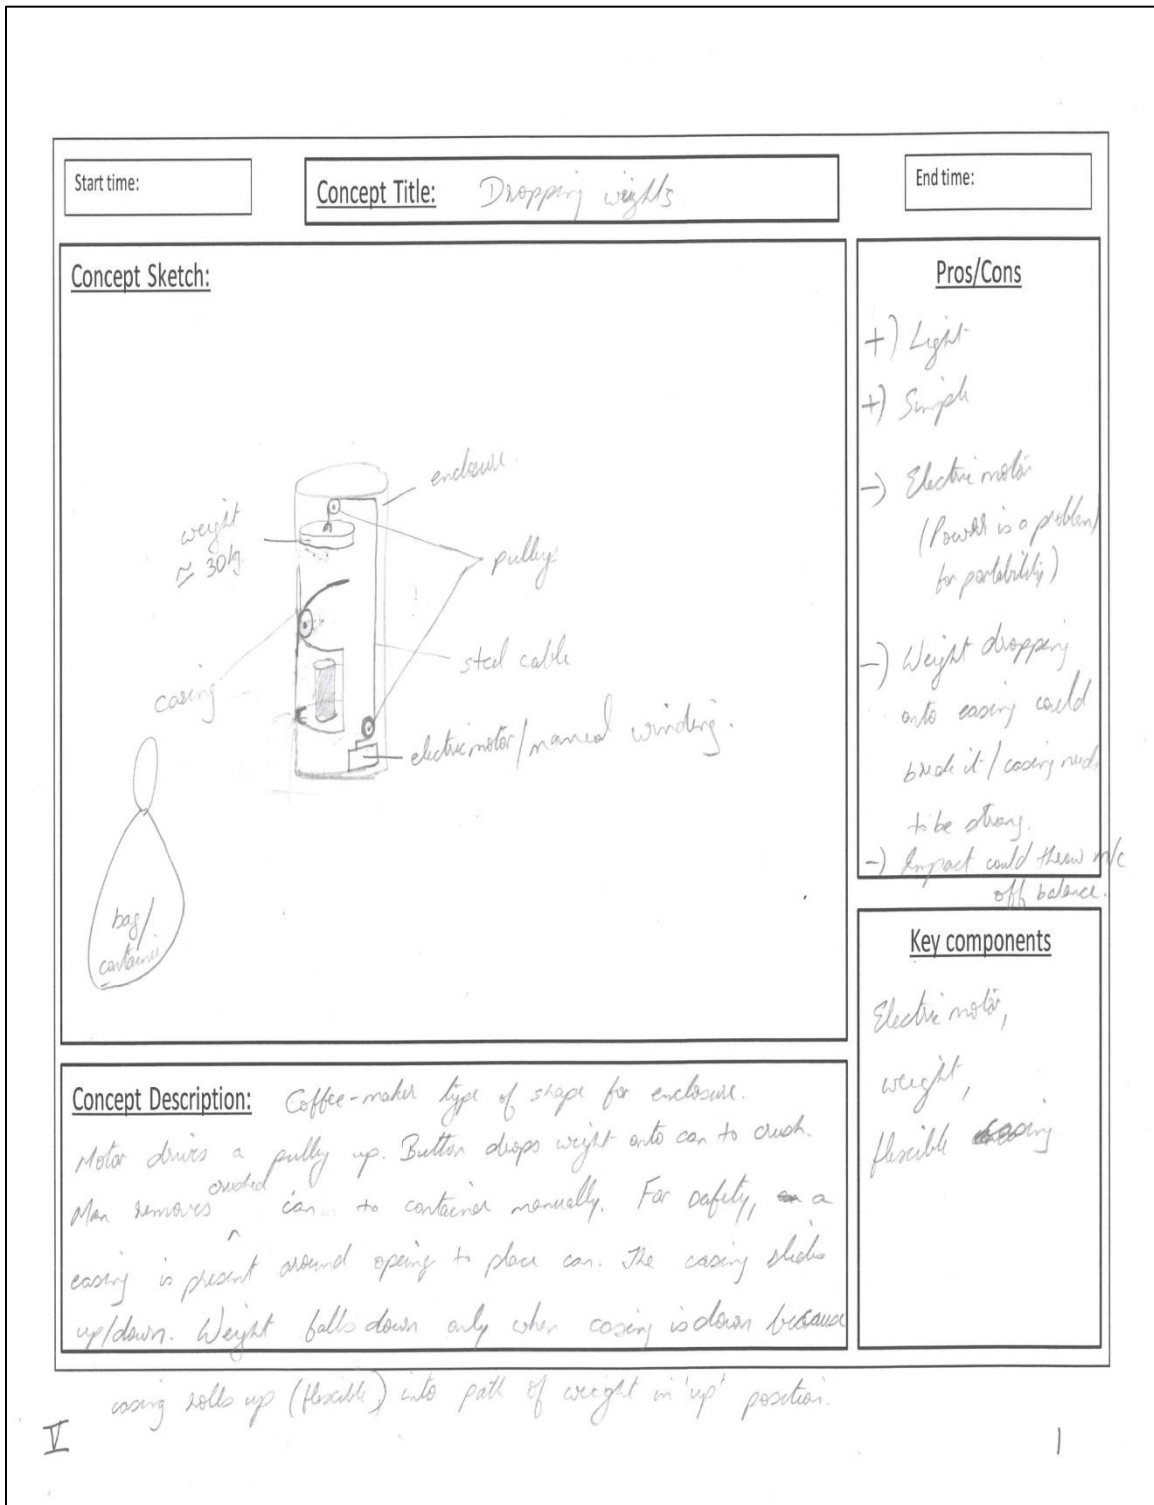 Start time:
Concept Title: Dropping weights
End time:
Concept Sketch:
enclosure.
weight
≃ 30kg
pulleys
casing
steel cable
electric motor/manual winding.
bag/
container
Pros/Cons
+) Light
+) Simple
-) Electric motor
(Power is a problem
for portability)
-) Weight dropping
onto casing could
break it / casing needs
to be strong.
-) Impact could throw m/c
off balance.
Key components
Electric motor,
weight,
flexible casing
Concept Description: Coffee-maker type of shape for enclosure.
Motor drives a pully up. Button drops weight onto can to crush.
Man removes crushed can to container manually. For safety, a
casing is present around opeing to place can. The casing slides
up/down. Weight falls down only when casing is down because
casing rolls up (flexible) into path of weight in 'up' position.
V
1